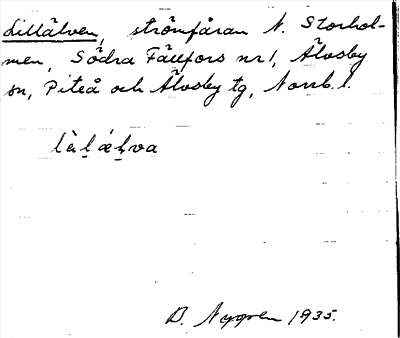 Lillälven, strömfåran N. Storhol-
men, Södra Fällfors nr 1, Älvsby
sn, Piteå och Älvsby tg, Norrb. l.
B. Nygren 1935.